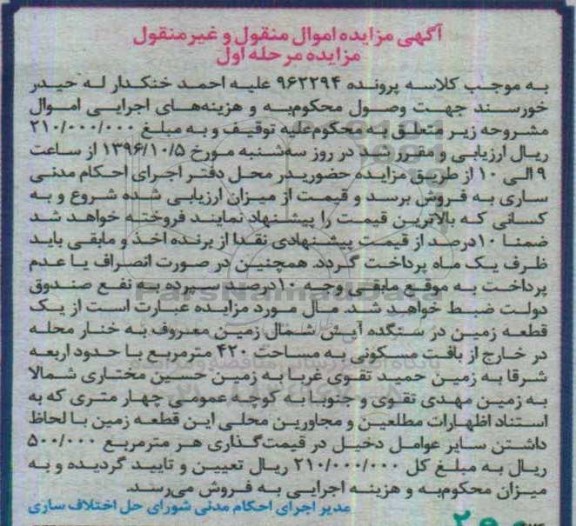 آگهی مزایده اموال منقول و غیر منقول
مزایده مرحله اول
به موجب کلاسه پرونده ۹۶۲۲۹۴ علیه احمد خنکدار له حیدر
خورسند جهت وصول محکوم‌به و هزینه‌های اجرایی اموال
مشروحه زیر متعلق به محکوم‌علیه توقیف و به مبلغ ۲۱۰/۰۰۰/۰۰۰
ریال ارزیابی و مقرر شد در روز سه‌شنبه مورخ ۱۳۹۶/۱۰/۵ از ساعت
۹ الی ۱۰ از طریق مزایده حضوریدر محل دفتر اجرای احکام مدنی
ساری به فروش برسد و قیمت از میزان ارزیابی شده شروع و به
کسانی که بالاترین قیمت را پیشنهاد نمایند فروخته خواهد شد
ضمنا ۱۰درصد از قیمت پیشنهادی نقدا از برنده اخذ و مابقی باید
ظرف یک ماه پرداخت گردد. همچنین در صورت انصراف یا عدم
پرداخت به موقع مابقی وجه ۱۰درصد سپرده به نفع صندوق
دولت ضبط خواهد شد. مال مورد مزایده عبارت است از یک
قطعه زمین در سنگده آبش شمال زمین معروف به خنار محله
در خارج از بافت مسکونی به مساحت ۴۲۰ مترمربع با حدود اربعه
شرقا به زمین حمید تقوی غربا به زمین حسین مختاری شمالا
به زمین مهدی تقوی و جنوبا به کوچه عمومی چهار متری که به
استناد اظهارات مطلعین و مجاورین محلی این قطعه زمین با لحاظ
داشتن سایر عوامل دخیل در قیمت‌گذاری هر مترمربع ۵۰۰/۰۰۰
ریال به مبلغ کل ۲۱۰/۰۰۰/۰۰۰ ریال تعیین و تایید گردیده و به
میزان محکوم‌به و هزینه اجرایی به فروش می‌رسد.
مدیر اجرای احکام مدنی شورای حل اختلاف ساری